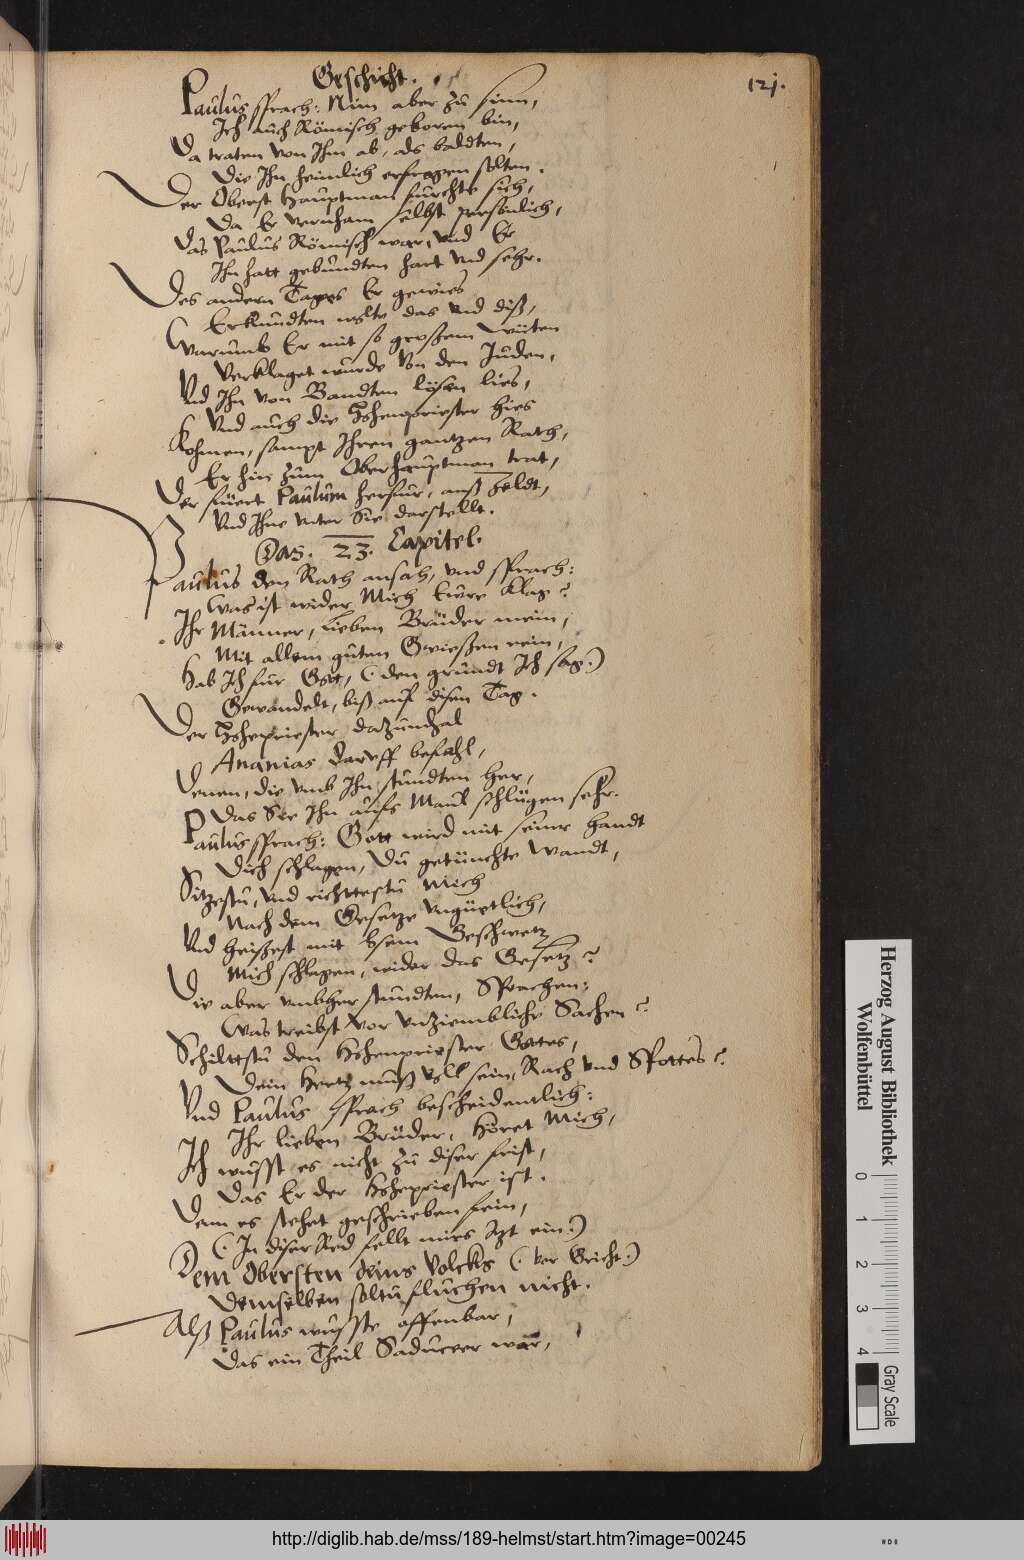 Geschicht.
121.
Paulus sprach: Nim aber zu sinn,
Ich auch Römisch geboren bin,
Da traten von Ihm ab, als baldten,
Die Ihn heimlich erfragen solten.
Der Oberst Hauptman furchte sich,
Da Er vernham selbst persönlich,
Das Paulus Römisch war, vnd Er
Ihn hatt gebundten hart vnd sehr.
Des andern Tages Er gewies
Erkundten wolte das vnd diß,
Warumb Er mit so großem wüten
Verklaget wurde von den Juden,
Vnd Ihn von Bandten lösen lies,
Vnd auch die Hohenpriester hies
Kohmen, sampt Ihren gantzen Rath,
Er hin zum Oberhauptman trat,
Der füert Paulum herfur,
Vnd Ihne vnter Sie darstellt.
Das. 23. Capitel.
Paulus den Rath ansah, vnd sprach:
Was ist wider Mich Eüre Klag?
Ihr Männer, lieben Brüder mein,
Mit allem guten Gewießen rein,
Hab Ich fur Gott, (den grundt Ich sag:)
Gewandelt, biß auf disen Tag.
Der Hohepriester dazumhal
Ananias darvff befahl,
Denen, die vmb Ihn stundten her,
Das Sie Ihn aufs Maul schlügen sehr.
Paulus sprach: Gott wird mit seiner handt
Dich schlagen, Du getünchte Wandt,
Sitzestu, vnd richttestu Mich
Nach dem Gesetze vngüetlich,
Vnd heißest mit bsem Geschwetz
Mich schlagen, wider das Gesetz?
Die aber vmbher stundten, Sprachen:
Was treibst vor vnziembliche Sachen?
Schilttstu den Hohenpriester Gottes,
Dein Hertz muß voll sein, Rach vnd Spottes?
Vnd Paulus sprach bescheidentlich:
Ihr lieben Brüder, Höret Mich,
Ich wusst es nicht zu diser frist,
Das Er der Hohepriester ist.
Denn es stehet geschrieben fein,
(In diser Red fellt mirs Jtzt ein:)
Dem Obersten deins Volcks (vor Gricht:)
Demselben soltu fluchen nicht.
Alß Paulus wusste offenbar,
Das ein Theil Saduceer war,
Herzog August Bibliothek
Wolfenbüttel
0 1 2 3 4
Gray Scale
http://diglib.hab.de/mss/189-helmst/start.htm?image=00245